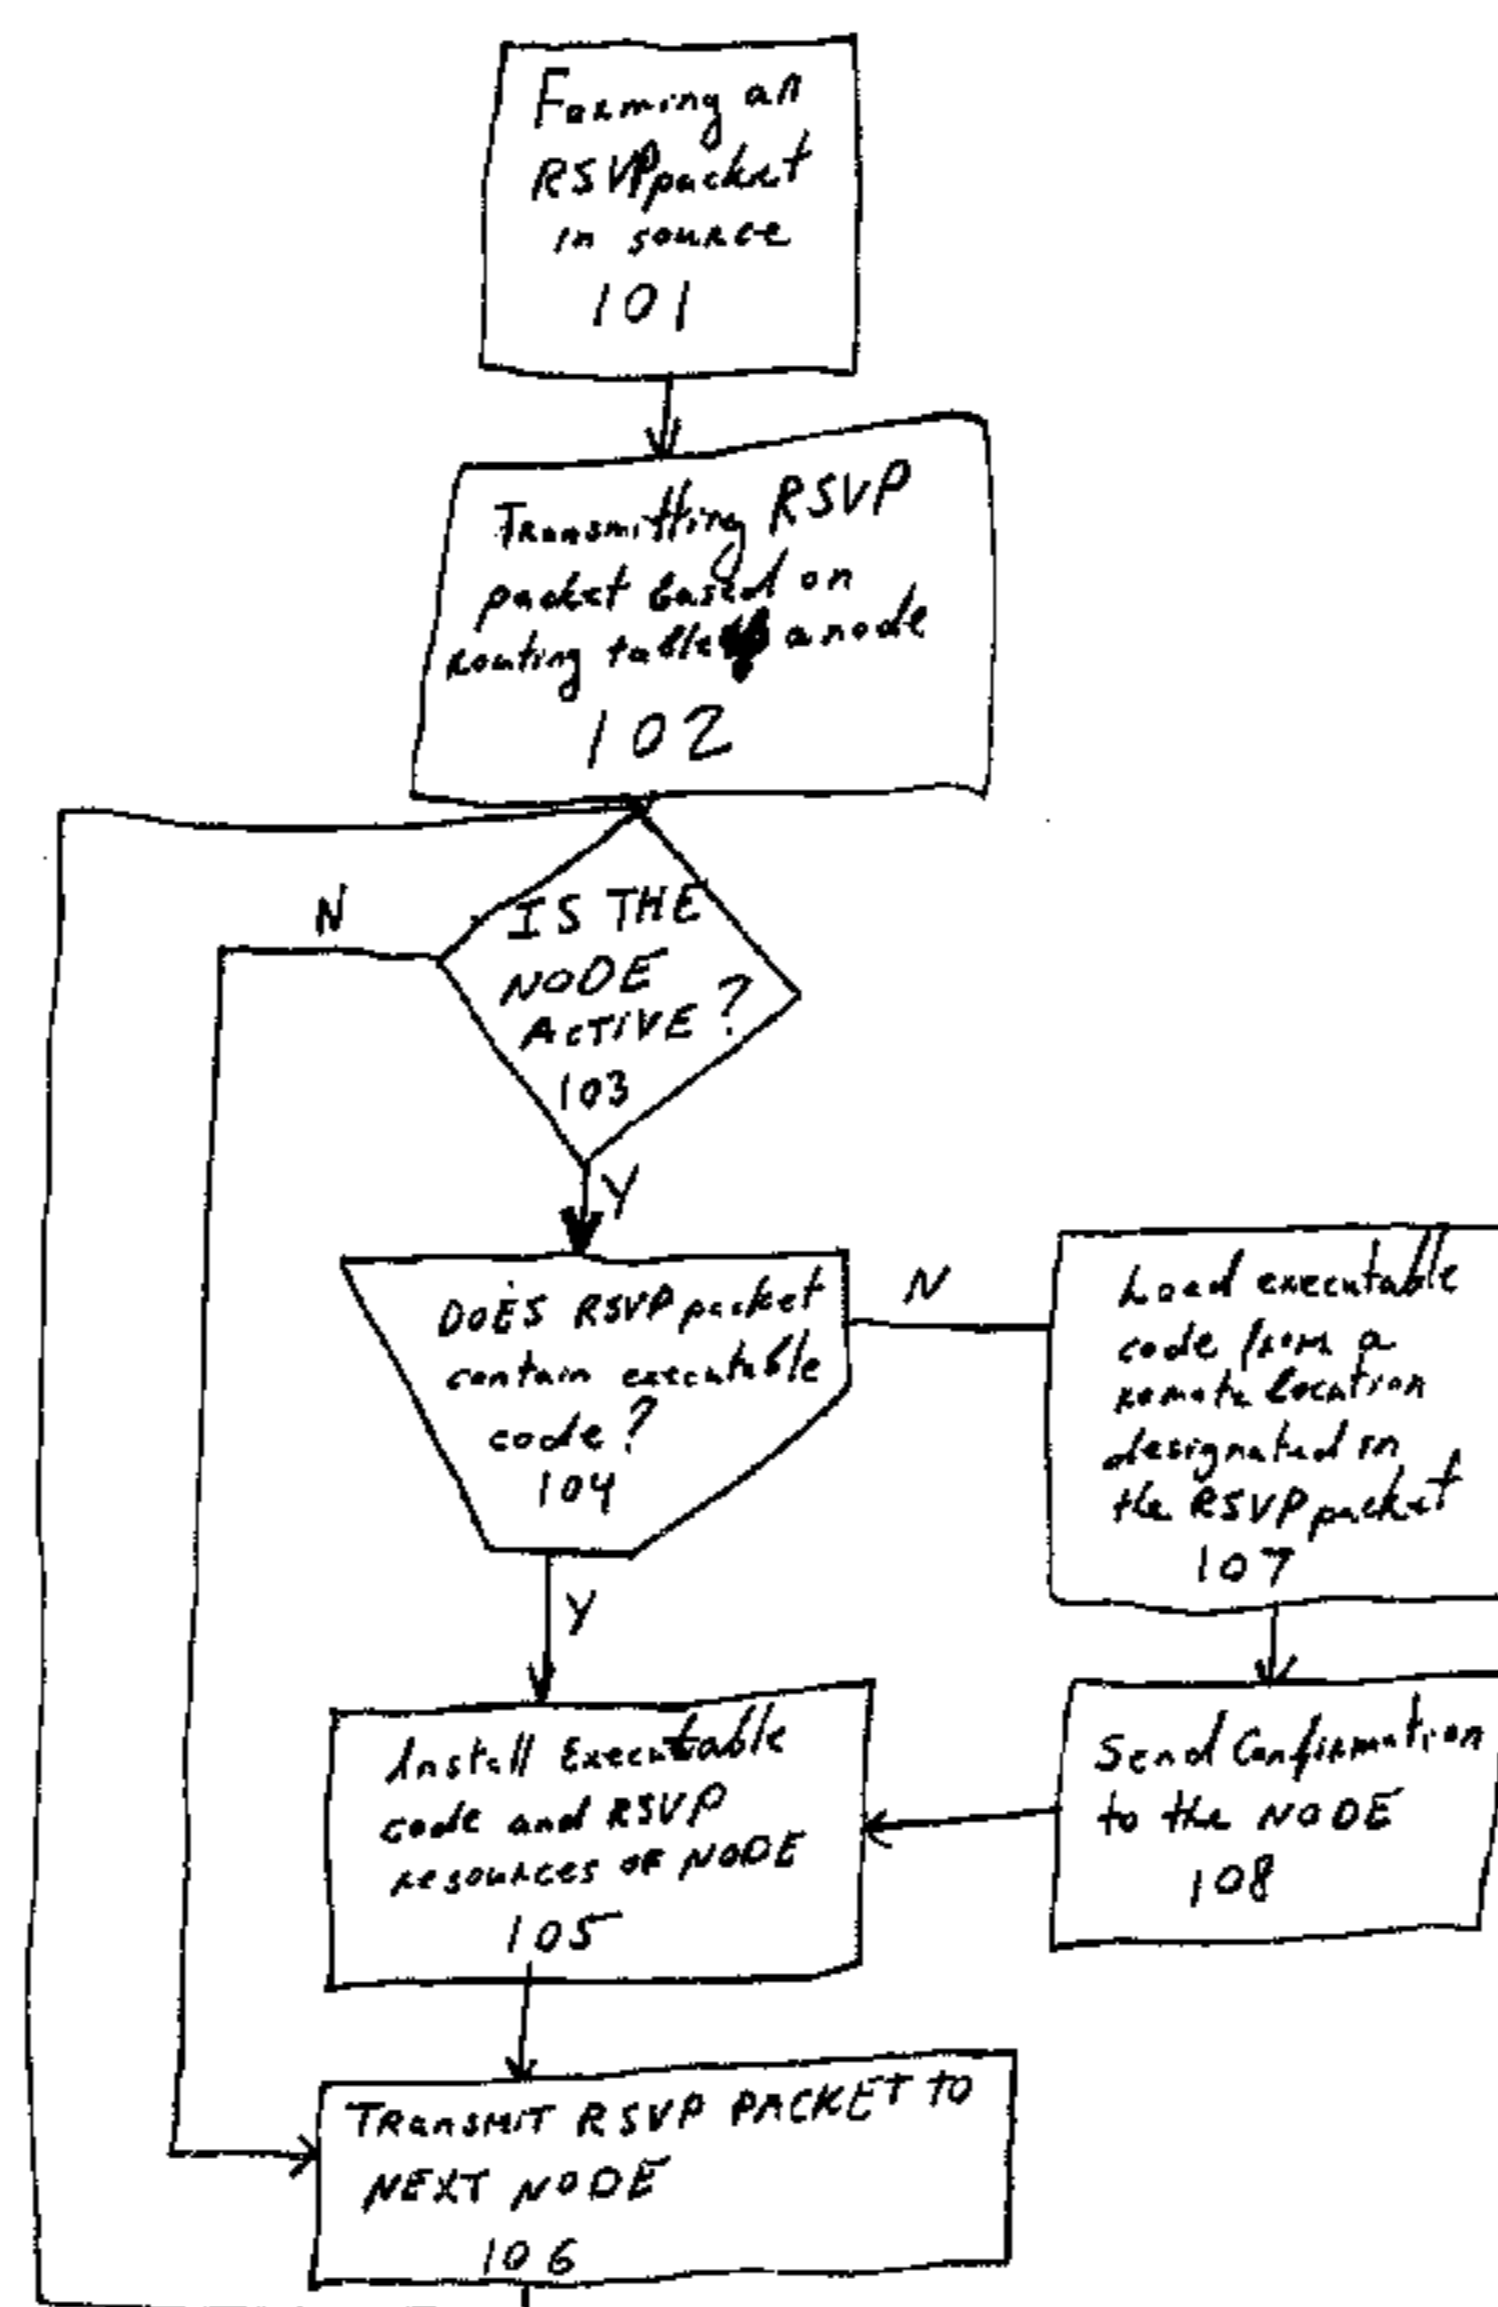 Forming an
RSVP packet
in source
101
Transmitting RSVP
packet based on
routing table a node
102
N
IS THE
NODE
ACTIVE?
103
Y
DOES RSVP packet
contain executable
code?
104
N
Load executable
code from a
remote location
designated in
the RSVP packet
107
Y
Install Executable
code and RSVP
resources OF NODE
105
Send Confirmation
to the NODE
108
TRansMIT RSVP PACKET TO
NEXT NODE
106